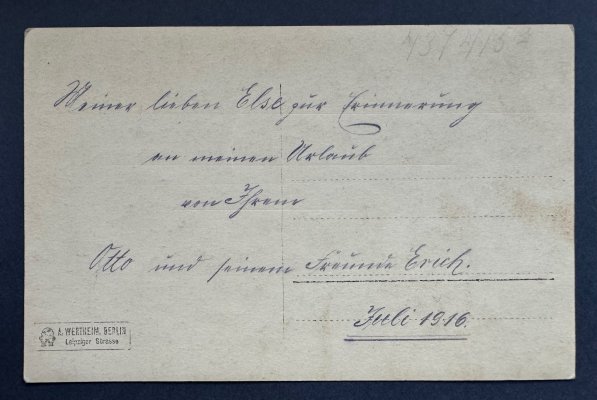 Meiner lieben Else zur Erinnerung
an meinen Urlaub
von Ihrem
Otto und seinem Freunde Erich.
Juli 1916.
A. WERTHEIM, BERLIN
Leipziger Strasse